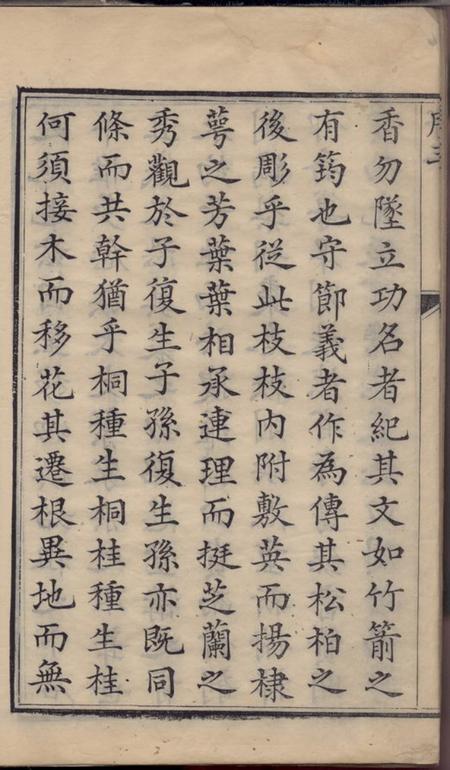 香勿墜立功名者紀其文如竹箭之
有筠也守節義者作為傳其松柏之
後彫乎從此枝枝內附敷英而揚棣
萼之芳葉葉相承連理而挺芝蘭之
秀觀於子復生子孫復生孫亦既同
條而共幹猶乎桐種生桐桂種生桂
何須接木而移花其遷根異地而無